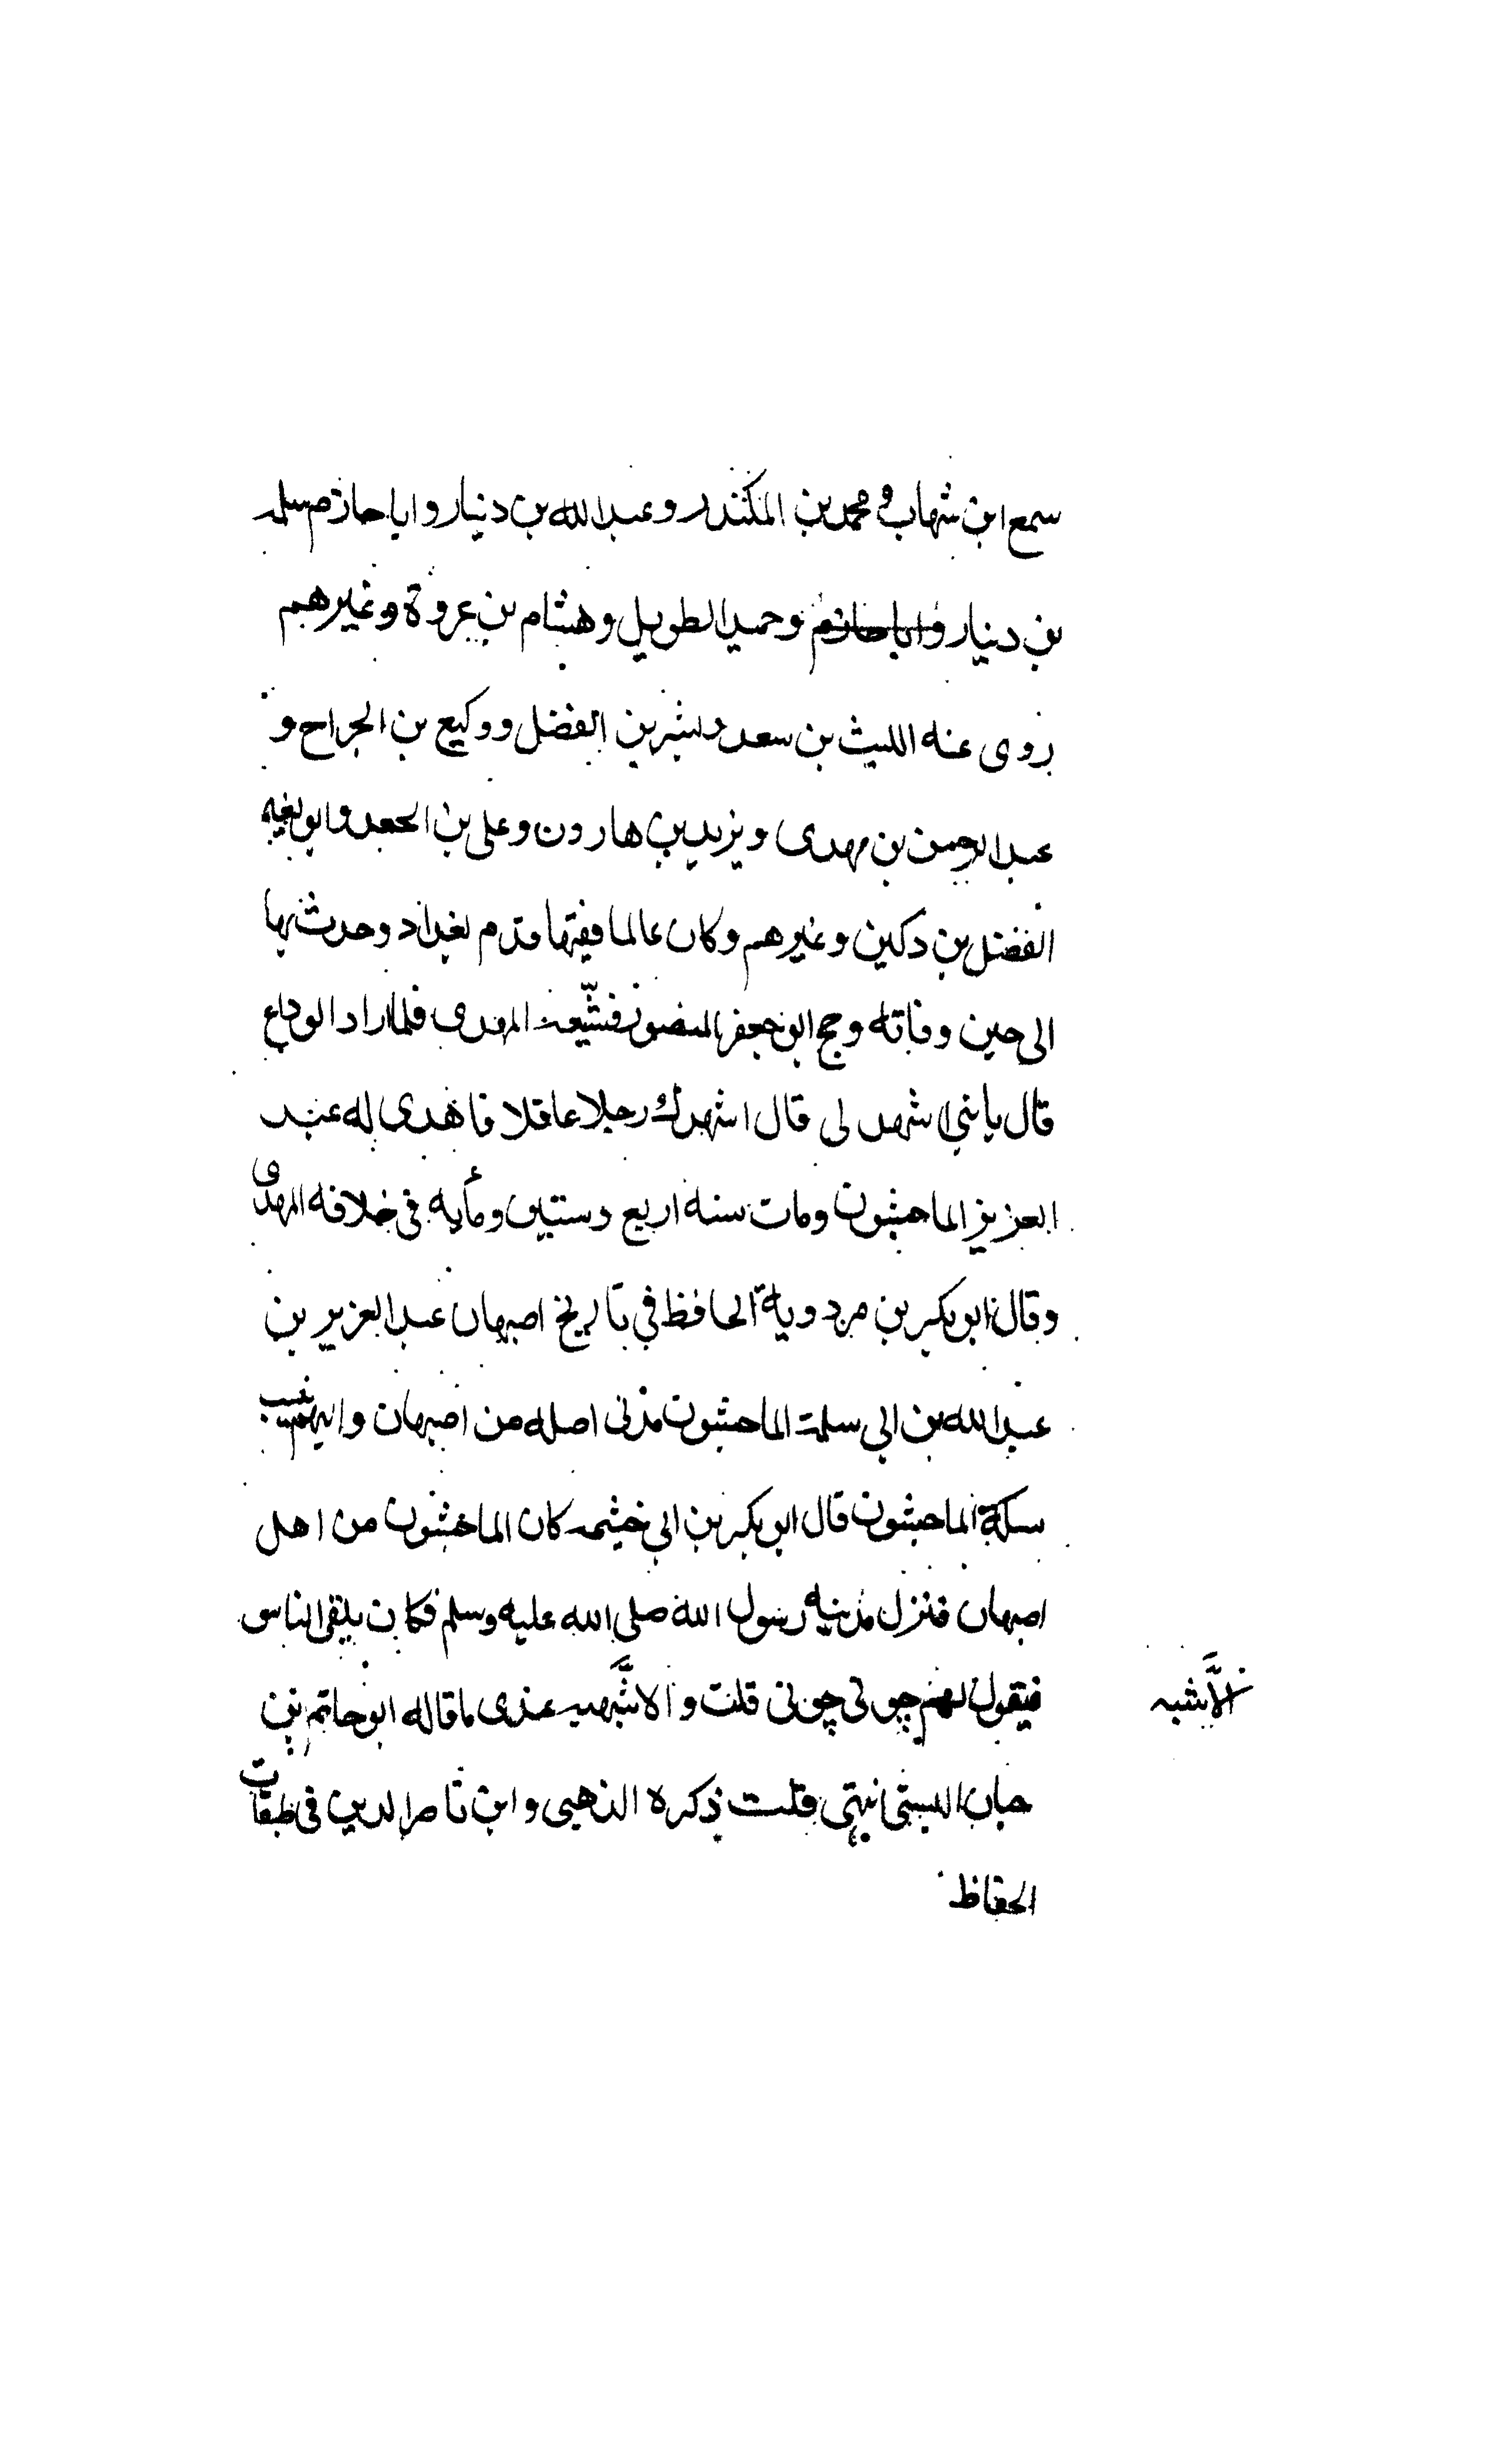 سمع ابن شهاب ومحمد بن المنكدر وعبد الله بن دينار وابا حازم سلمه
بن دينار وابا حازم وحميد الطويل وهشام بن عروة وغيرهم
روى عنه الليث بن سعد وبشر بن الفضل ووكيع بن الجراح و
عبد الرحمن بن مهدى ويزيد بن هارون وعلى بن الجعد وابو نعيم
الفضل بن دكين وغيرهم وكان عالما فقيها قدم بغداد وحدث بها
الى حين وفاته وحج ابو جعفر المنصور فشيّعه المهدى فلما اراد الوداع
قال يا بني اشهد لى قال اشهدك رجلا عاقلا فاهدى له عبد
العزيز الماجشون ومات سنه اربع وستين ومأيه في خلافه المهدى
وقال ابو بكر بن مردوية الحافظ في تاريخ اصبهان عبد العزيز بن
عبد الله بن ابي سلمة الماجشون مدنى اصله من اصبهان واليهم ينسب
سكة الماجشون قال ابو بكر بن ابي خيثمه كان الماجشون من اهل
اصبهان فنزل مدينه رسول الله صلى الله عليه وسلم فكان يلقى الناس
فيقول لهم چونى چونى قلت والاشبه عندى ما قاله ابو حاتم بن
حبان البستى انتهى قلت ذكره الذهبى وابن ناصر الدين فى طبقات
الحفاظ
الأشبه